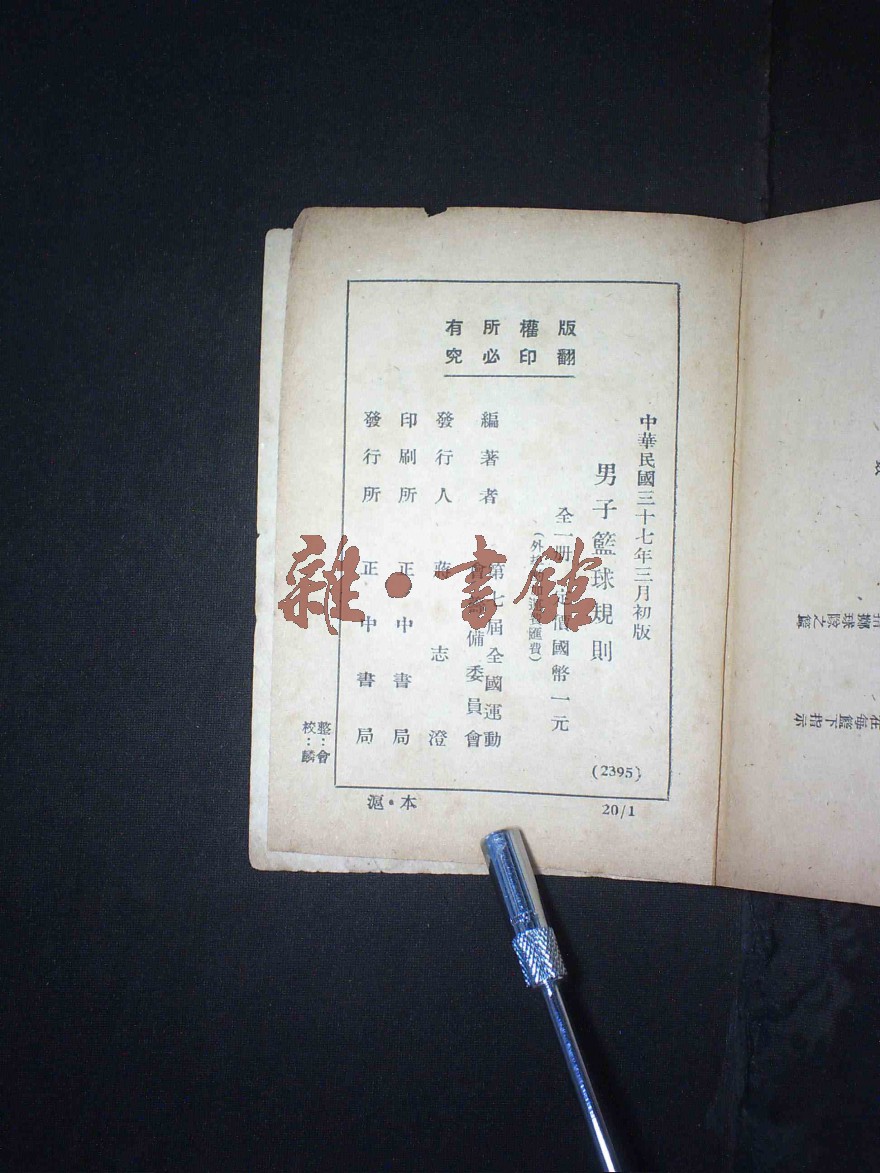 版權所有
翻印必究
中華民國三十七年三月初版
男子籃球規則
全一冊 定價國幣一元
(外埠 運費匯費)
編著者 第七屆全國運動
會籌備委員會
發行人 蔣志澄
印刷所 正中書局
發行所 正中書局
(2395)
整:會
校:麟
滬·本
20/1
雜·書館
在每籃下指示